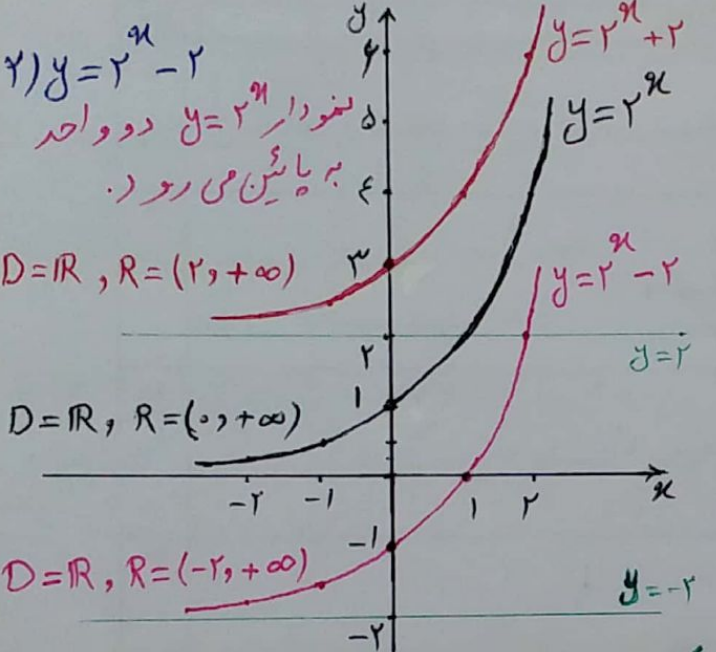 ۲) y = ۲^x - ۲
نمودار y = ۲^x دو واحد
به پائین می رود.
D = ℝ , R = (۲, +∞)
D = ℝ , R = (۰, +∞)
D = ℝ , R = (-۲, +∞)
y
۶
۵
۴
۳
۲
۱
-۱
-۲
-۲ -۱ ۱ ۲
x
y = ۲^x + ۲
y = ۲^x
y = ۲^x - ۲
y = ۲
y = -۲